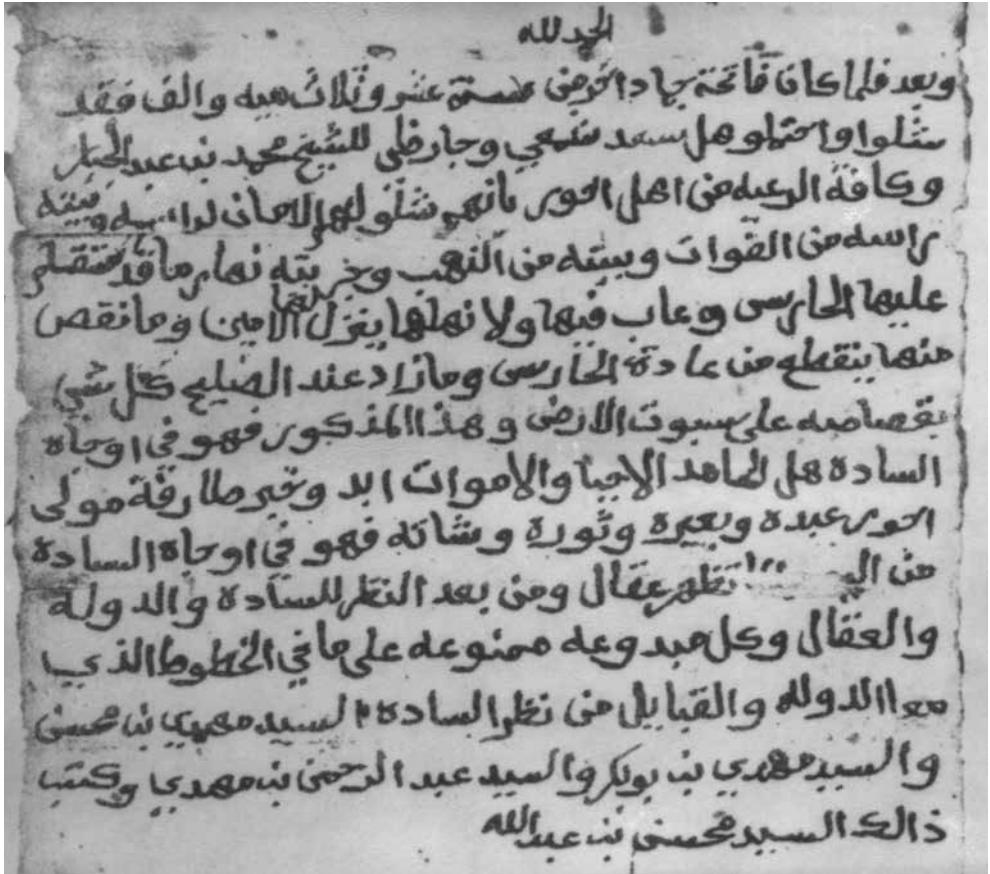 الحمد لله
وبعد فلما كان فاتحة جماد اخر من سنة ستة عشر وثلاث ميه والف فقد
شلوا واحتملو هل سعد شمعي وجار ضلي للشيخ محمد بن عبد الجبار
وكافة الرعيه من اهل الحور بانهم شلو لهم الامان لراسه وبيته
راسه من القوات وبيته من النهب وخربته نهار ما قد
عليها الحارس وعاب فيها ولا نهلها ينزل لها الامين وما نقص
منها ينقطع من عادة الحارس وما زاد عند الضليع كل شي
بقصاصه على سبوت الارض وهذا المذكور فهو في اوجاه
السادة هل الحامد الاحيا والاموات ابد وخبر طارفة مولى
الحور عبده وبعيره وثوره وشاته فهو في اوجاه السادة
من نظر عقال ومن بعد النظر للسادة والدوله
والعقال وكل مبدوعه ممنوعه على ما في الخطوط الذي
معا الدوله والقبايل من نظر السادة السيد مهدي بن محسن
والسيد مهدي بن بوبكر والسيد عبد الرحمن بن مهدي وكتب
ذالك السيد محسن بن عبد الله